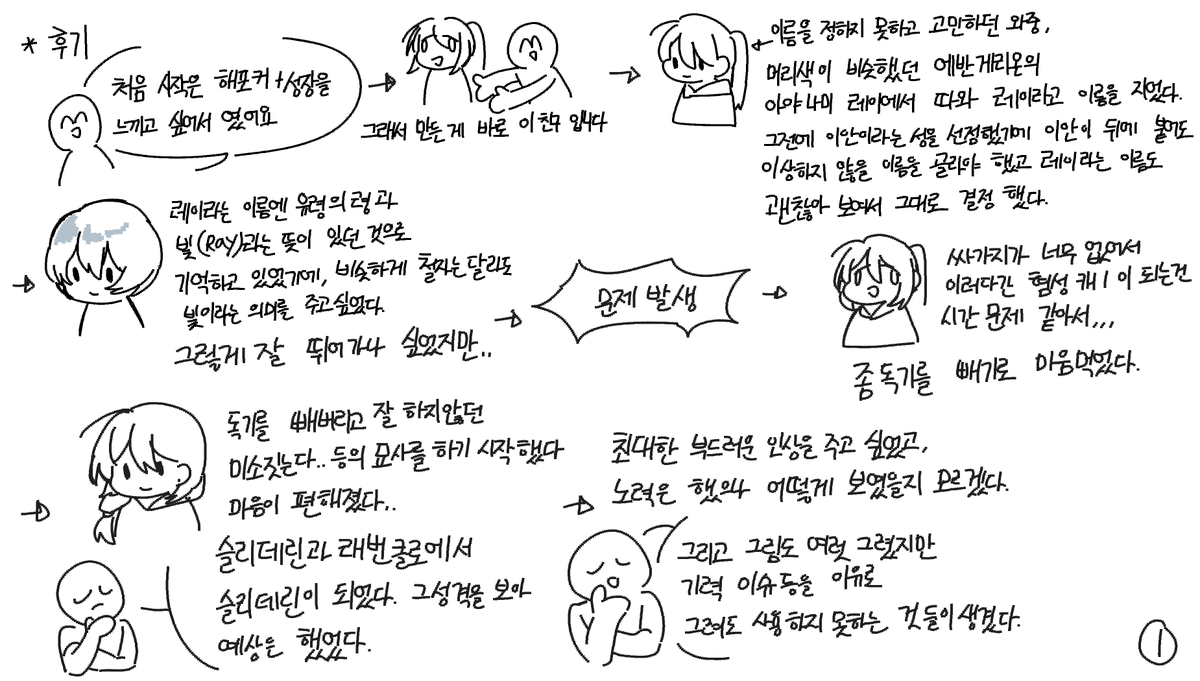 * 후기
처음 시작은 해포커+성장을
느끼고 싶어서 였어요
그래서 만든게 바로 이 친구 입니다
이름을 정하지 못하고 고민하던 와중,
머리색이 비슷했던 에반게리온의
아야나미 레이에서 따와 레이라고 이름을 지었다.
그전에 이안이라는 성을 선정했기에 이안이 뒤에 붙어도
이상하지 않을 이름을 골라야 했고 레이라는 이름도
괜찮아 보여서 그대로 결정 했다.
레이라는 이름엔 유령의 령과
빛(Ray)라는 뜻이 있던 것으로
기억하고 있었기에, 비슷하게 철자는 달라도
빛이라는 의미를 주고싶었다.
그렇게 잘 뛰어가나 싶었지만..
문제 발생
싸가지가 너무 없어서
이러다간 혐성 캐1이 되는건
시간 문제 같아서,,,
좀 독기를 빼기로 마음먹었다.
독기를 빼버리고 잘 하지않던
미소짓는다.. 등의 묘사를 하기 시작했다
마음이 편해졌다..
최대한 부드러운 인상을 주고 싶었고,
노력은 했으나 어떻게 보였을지 모르겠다.
슬리데린과 래번클로에서
슬리데린이 되었다. 그성격을 보아
예상은 했었다.
그리고 그림도 여럿 그렸지만
기력 이슈등을 이유로
그려도 사용하지 못하는 것들이 생겼다.
1